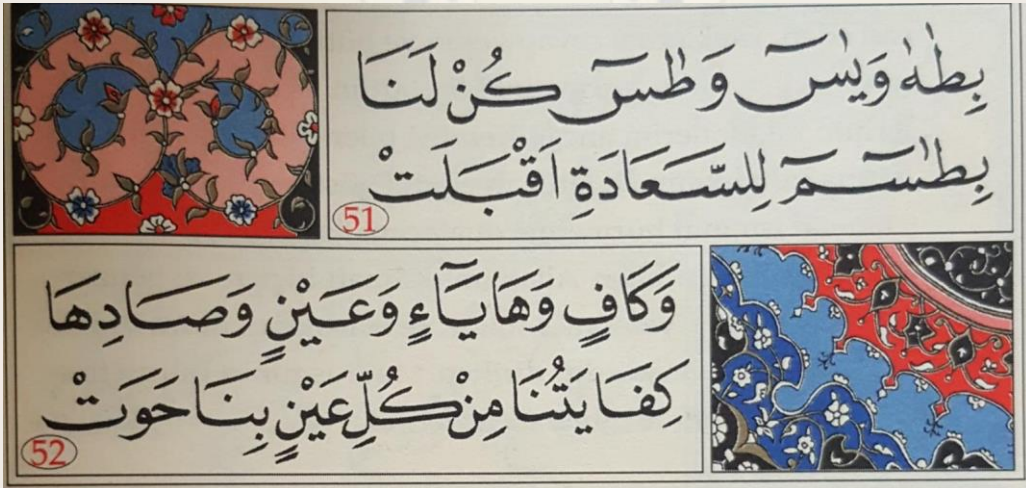 بِطٰهٰ وَيٰسٓ وَطٰسٓ كُنْ لَنَا
بِطٰسٓمٓ لِلسَّعَادَةِ اَقْبَلَتْ
51
وَكَافٍ وَهَا يَٓاءٍ وَعَيْنٍ وَصَادِهَا
كِفَايَتُنَا مِنْ كُلِّ عَيْنٍ بِنَا حَوَتْ
52